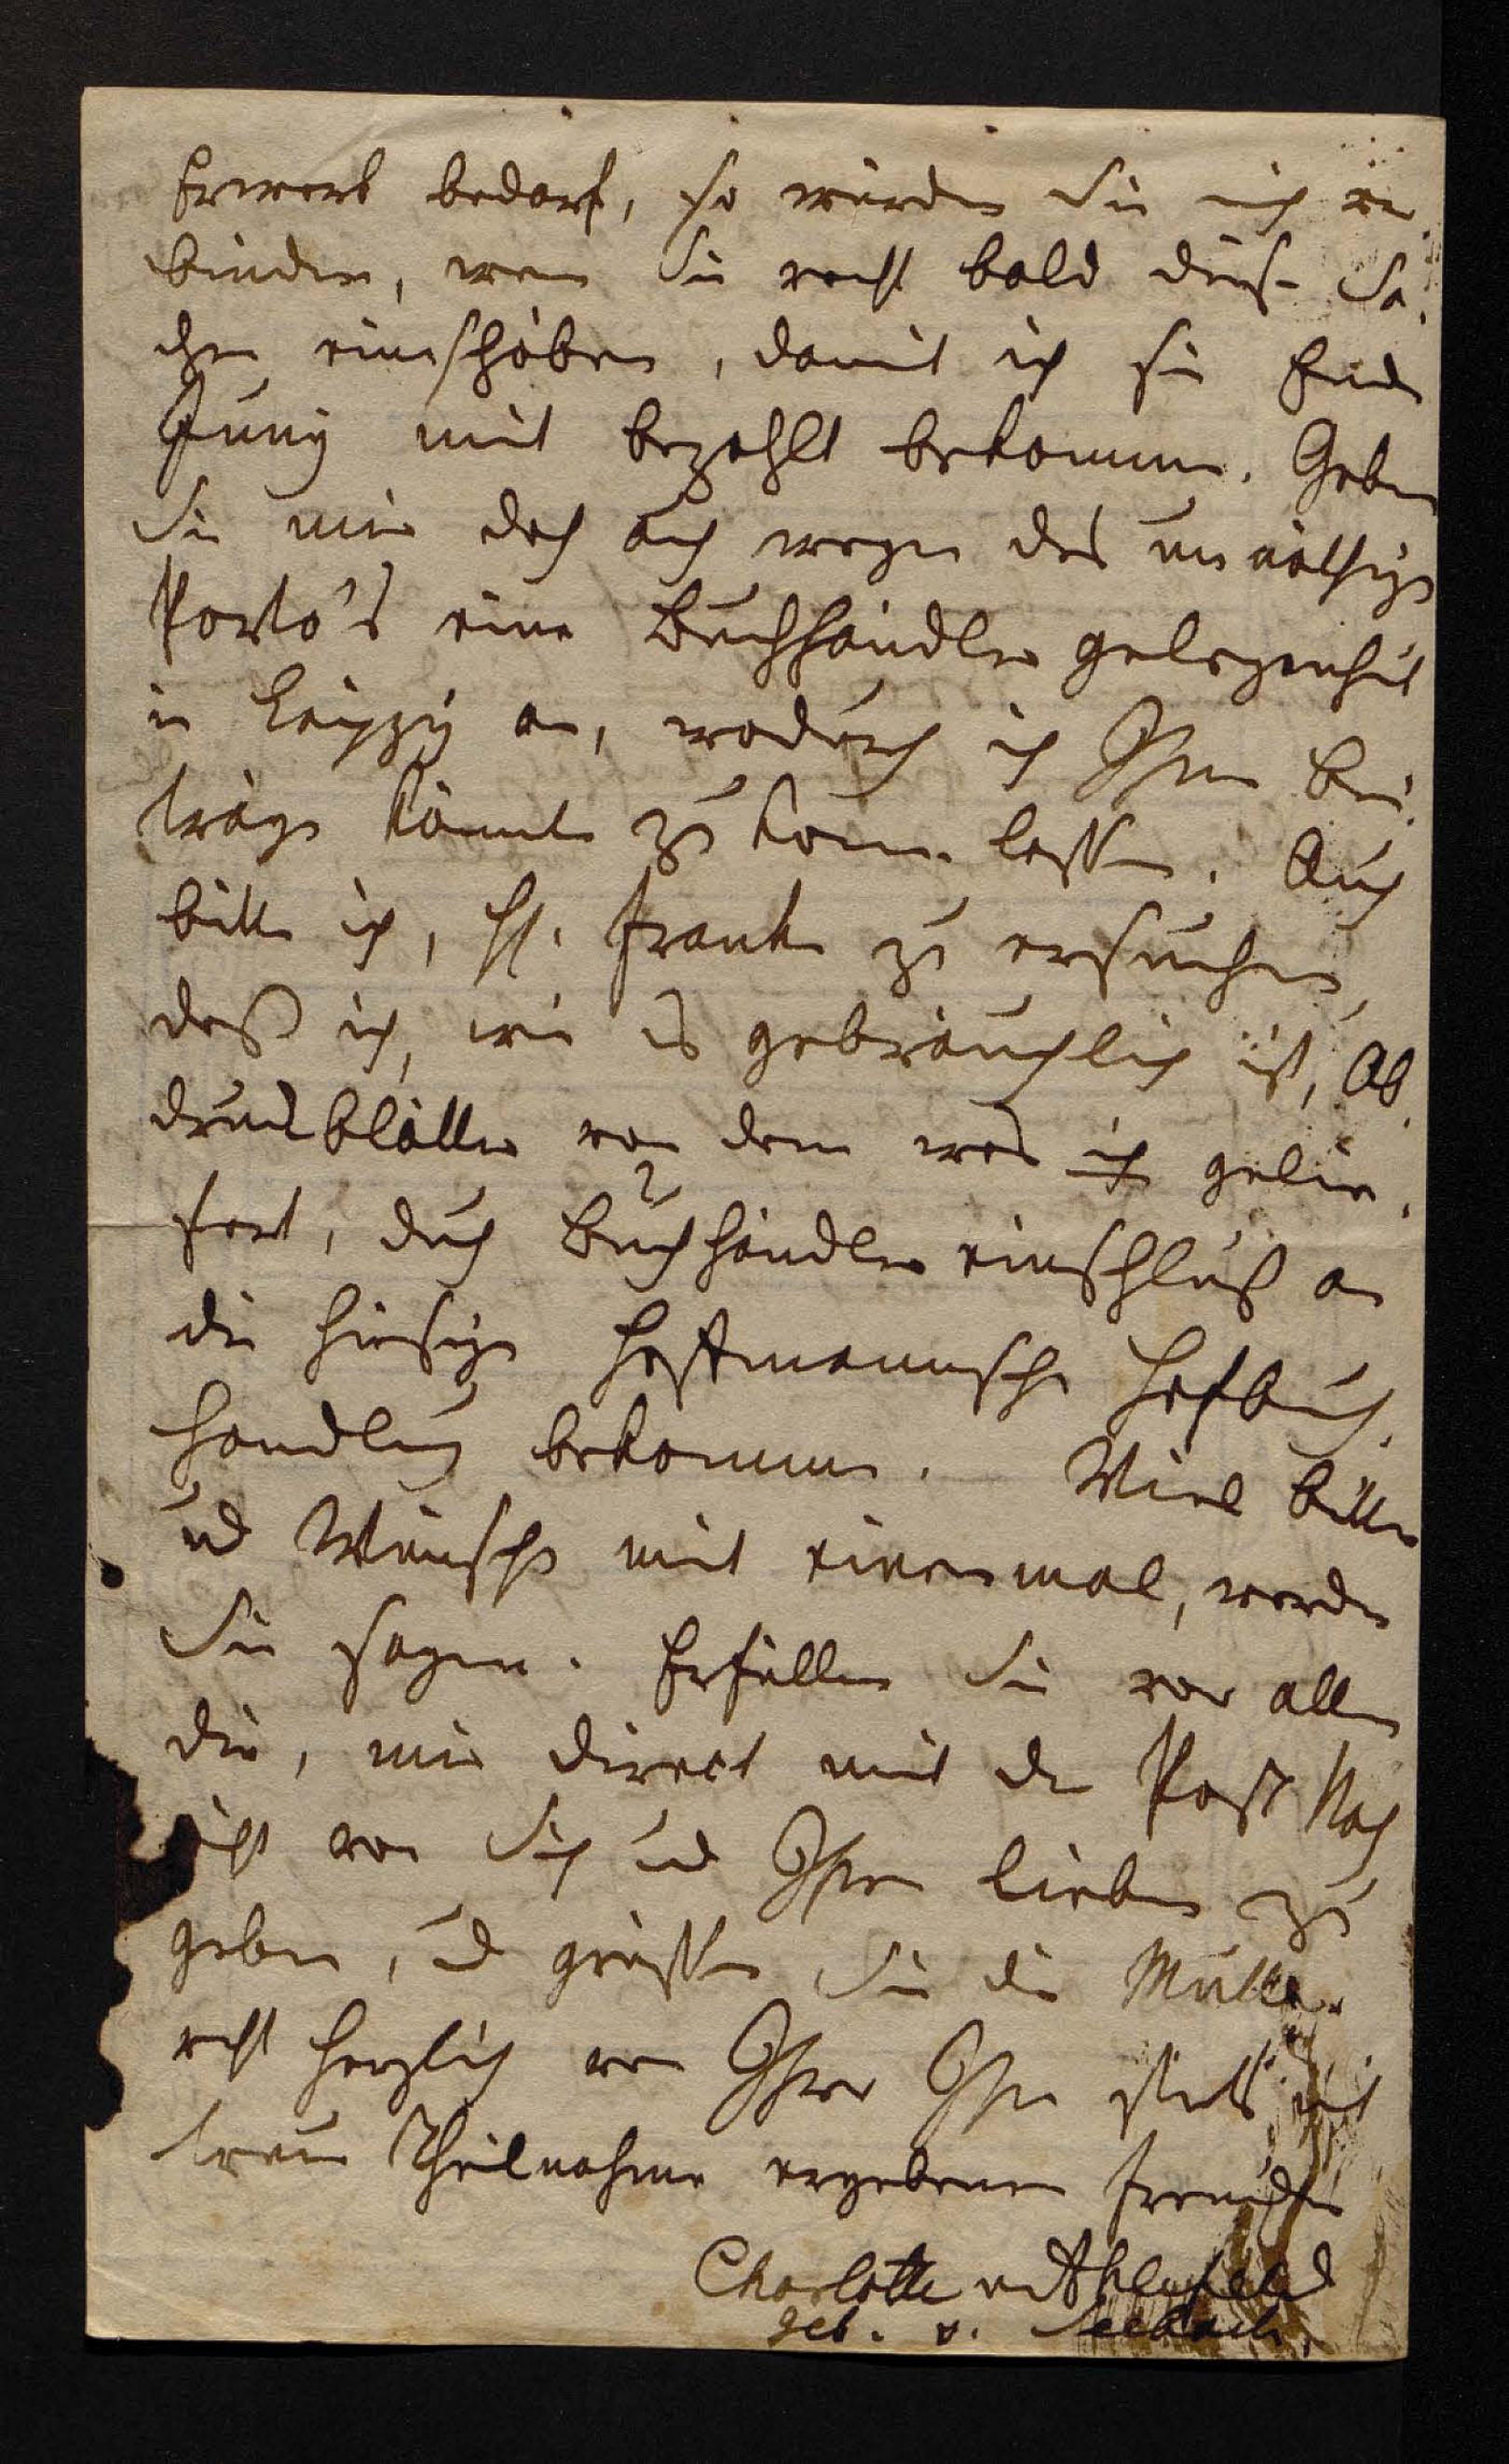 Erwerb bedarf, so würden Sie mich ver
binden, wenn Sie recht bald diese Sa-
chen einschöben, damit ich sie Ende
Juny mit bezahlt bekomme. Geben
Sie mir doch auch wegen des unnöthigen
Porto's eine Buchhändler gelegenheit
in Leipzig an, wodurch ich Ihnen Bei-
träge könnte zu kommen lassen. Auch
bitte ich, H. Franke zu ersuchen,
daß ich, wie es gebräuchlich ist, Ab-
druckblätter von dem was ich gelie-
fert, durch Buchhändler einschluß an
die hiesige Hoffmannsche Hofbuch-
handlung bekomme. Viel Bitten
und Wünsche mit einemmal, werden
Sie sagen. Erfüllen Sie vor allen
die, mir direct mit der Post Nach
richt von Sich und Ihren Lieben zu
geben, und grüssen Sie die Mutter
recht herzlich von Ihrer Ihnen stets mit
treuer Theilnahme ergebenen Freundin
Charlotte v Ahlefeld
geb. v. Seebach.